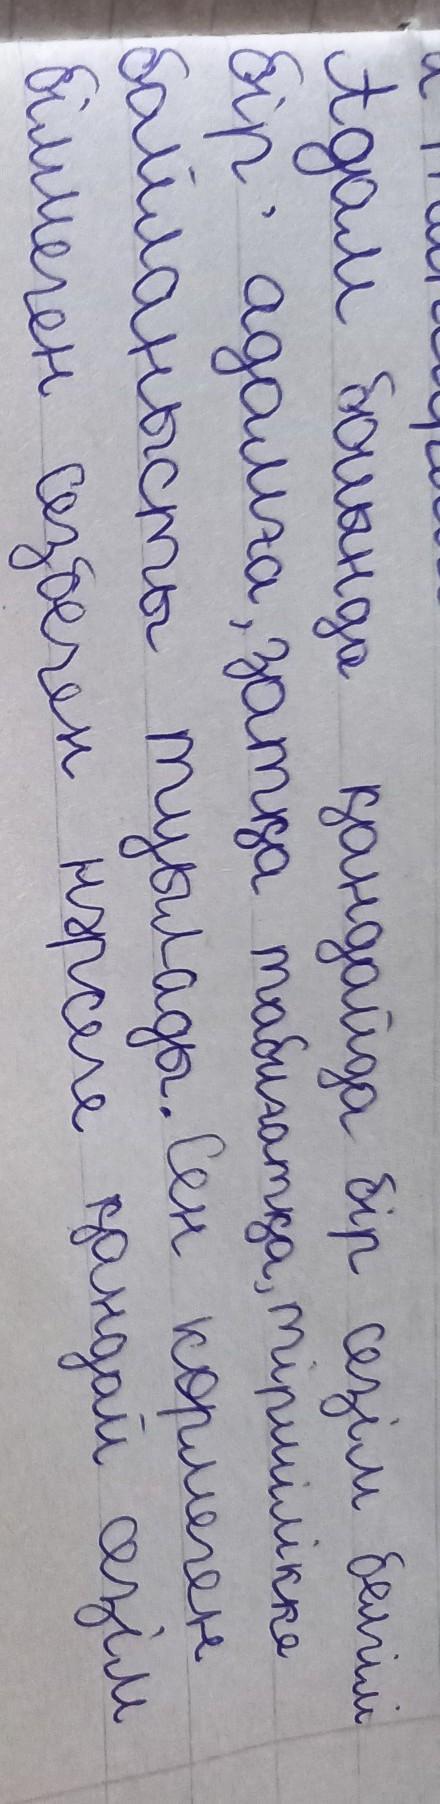 Адам бойында қандайда бір сезім белгілі
бір, адамға, затқа табиғатқа, тіршілікке
байланысты туылады. Сен көрмеген
білмеген сезбеген нәрсеге қандай сезім